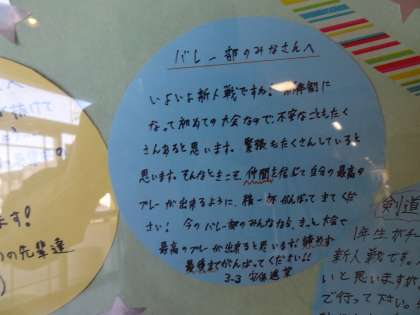 バレー部のみなさんへ
いよいよ新人戦ですね。新体制に
なって初めての大会なので、不安なこともたく
さんあると思います。緊張もたくさんしていると
思います。そんなときこそ、仲間を信じて自分の最高の
プレーが出来るように、精一杯がんばってきてくだ
さい！今のバレー部のみんななら、きっと大会で
最高のプレーが出来ると思いるす。諦めず
最後までがんばってください!!
3-3
ます！
の先輩達
剣道
1年生が
新人戦です。
いと思いますが
で行って下さい。